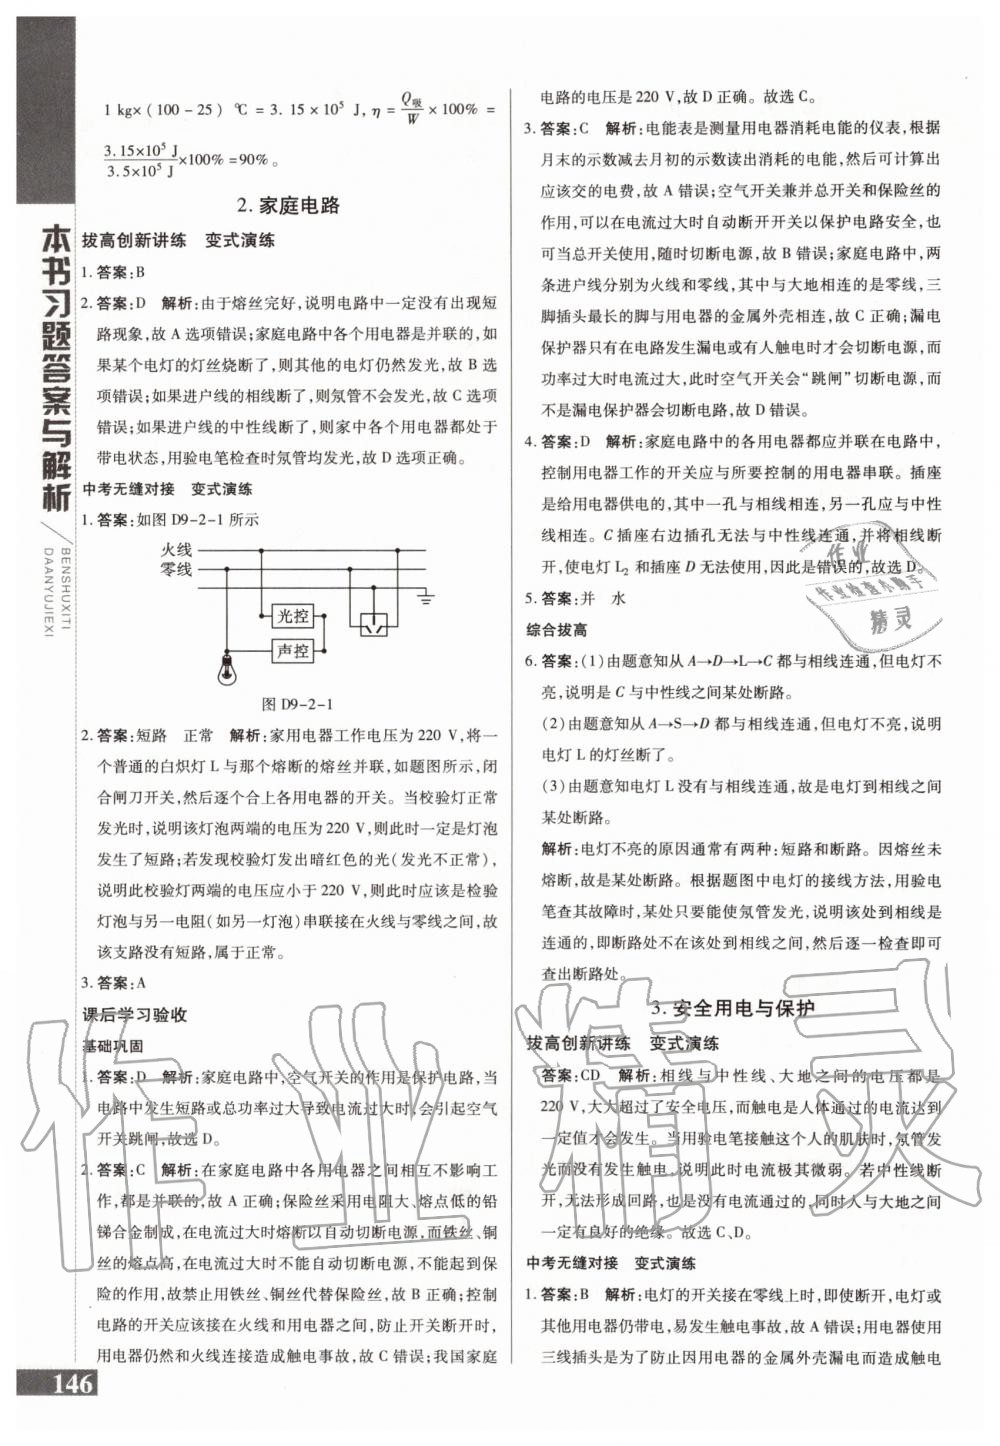 本书习题答案与解析
BENSHUXITI
DAANYUJIEXI
1 kg×(100-25) ℃=3. 15×10⁵ J, η=Q吸/W×100%=
3.15×10⁵ J/3.5×10⁵ J×100%=90%。
2. 家庭电路
拔高创新讲练　变式演练
1. 答案:B
2. 答案:D　解析:由于熔丝完好,说明电路中一定没有出现短
路现象,故 A 选项错误;家庭电路中各个用电器是并联的,如
果某个电灯的灯丝烧断了,则其他的电灯仍然发光,故 B 选
项错误;如果进户线的相线断了,则氖管不会发光,故 C 选项
错误;如果进户线的中性线断了,则家中各个用电器都处于
带电状态,用验电笔检查时氖管均发光,故 D 选项正确。
中考无缝对接　变式演练
1. 答案:如图 D9-2-1 所示
火线
零线
光控
声控
图 D9-2-1
2. 答案:短路　正常　解析:家用电器工作电压为 220 V,将一
个普通的白炽灯 L 与那个熔断的熔丝并联,如题图所示,闭
合闸刀开关,然后逐个合上各用电器的开关。当校验灯正常
发光时,说明该灯泡两端的电压为 220 V,则此时一定是灯泡
发生了短路;若发现校验灯发出暗红色的光(发光不正常),
说明此校验灯两端的电压应小于 220 V,则此时应该是检验
灯泡与另一电阻(如另一灯泡)串联接在火线与零线之间,故
该支路没有短路,属于正常。
3. 答案:A
课后学习验收
基础巩固
1. 答案:D　解析:家庭电路中,空气开关的作用是保护电路,当
电路中发生短路或总功率过大导致电流过大时,会引起空气
开关跳闸,故选 D。
2. 答案:C　解析:在家庭电路中各用电器之间相互不影响工
作,都是并联的,故 A 正确;保险丝采用电阻大、熔点低的铅
锑合金制成,在电流过大时熔断来自动切断电源,而铁丝、铜
丝的熔点高,在电流过大时不能自动切断电源,起不到保
险的作用,故禁止用铁丝、铜丝代替保险丝,故 B 正确;控制
电路的开关应该接在火线和用电器之间,防止开关断开时,
用电器仍然和火线连接造成触电事故,故 C 错误;我国家庭
146
电路的电压是 220 V,故 D 正确。故选 C。
3. 答案:C　解析:电能表是测量用电器消耗电能的仪表,根据
月末的示数减去月初的示数读出消耗的电能,然后可计算出
应该交的电费,故 A 错误;空气开关兼并总开关和保险丝的
作用,可以在电流过大时自动断开开关以保护电路安全,也
可当总开关使用,随时切断电源,故 B 错误;家庭电路中,两
条进户线分别为火线和零线,其中与大地相连的是零线,三
脚插头最长的脚与用电器的金属外壳相连,故 C 正确;漏电
保护器只有在电路发生漏电或有人触电时才会切断电源,而
电流过大时电流过大,此时空气开关会“跳闸”切断电源,而
不是漏电保护器会切断电路,故 D 错误。
4. 答案:D　解析:家庭电路中的各用电器都应并联在电路中,
控制用电器工作的开关应与所要控制的用电器串联。插座
是给用电器供电的,其中一孔与相线相连,另一孔应与中性
线相连。C 插座右边插孔无法与中性线连通,并将相线断
开,使电灯 L₂ 和插座 D 无法使用,因此是错误的,故选 D。
5. 答案:并　水
综合拔高
6. 答案:(1)由题意知从 A→D→L→C 都与相线连通,但电灯不
亮,说明是 C 与中性线之间某处断路。
(2)由题意知从 A→S→D 都与相线连通,但电灯不亮,说明
电灯 L 的灯丝断了。
(3)由题意知电灯 L 没有与相线连通,故是电灯到相线之间
某处断路。
解析:电灯不亮的原因通常有两种:短路和断路。因熔丝未
熔断,故是某处断路。根据题图中电灯的接线方法,用验电
笔查其故障时,某处只要能使氖管发光,说明该处到相线是
连通的,即断路处不在该处到相线之间,然后逐一检查即可
查出断路处。
3. 安全用电与保护
拔高创新讲练　变式演练
答案:CD　解析:相线与中性线、大地之间的电压都是
220 V,大大超过了安全电压,而触电是人体通过的电流达到
一定值才会发生。当用验电笔接触这个人的肌肤时,氖管发
光而没有发生触电,说明此时电流极其微弱。若中性线断
开,无法形成回路,也是没有电流通过的,同时人与大地之间
一定有良好的绝缘。故选 C、D。
中考无缝对接　变式演练
1. 答案:B　解析:电灯的开关接在零线上时,即使断开,电灯或
其他用电器仍带电,易发生触电事故,故 A 错误;用电器使用
三线插头是为了防止因用电器的金属外壳漏电而造成触电
作业
作业检查小助手
精灵
作业精灵